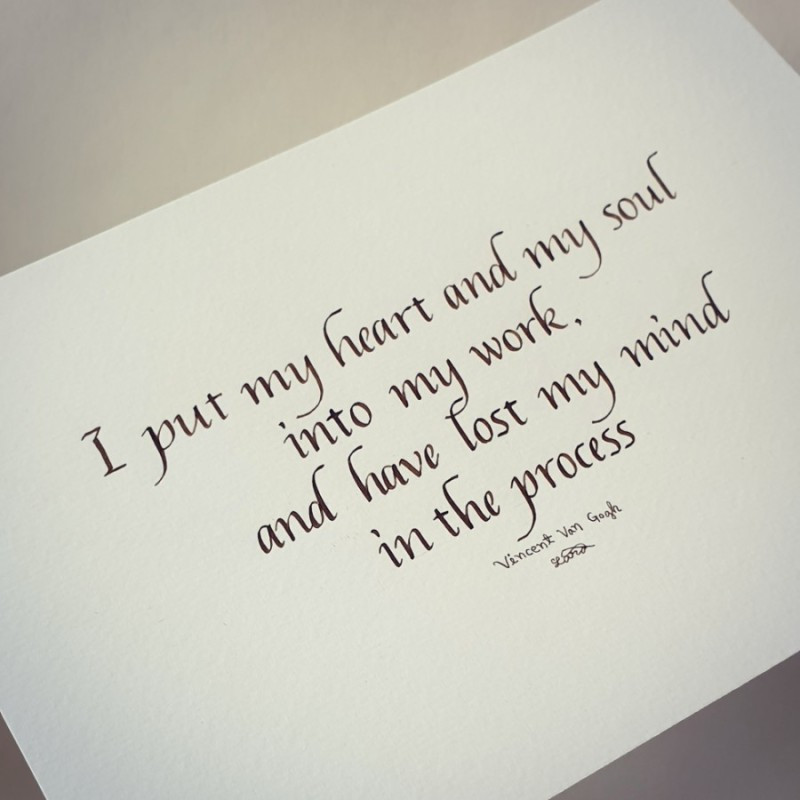 I put my heart and my soul
into my work,
and have lost my mind
in the process
Vincent Van Gogh